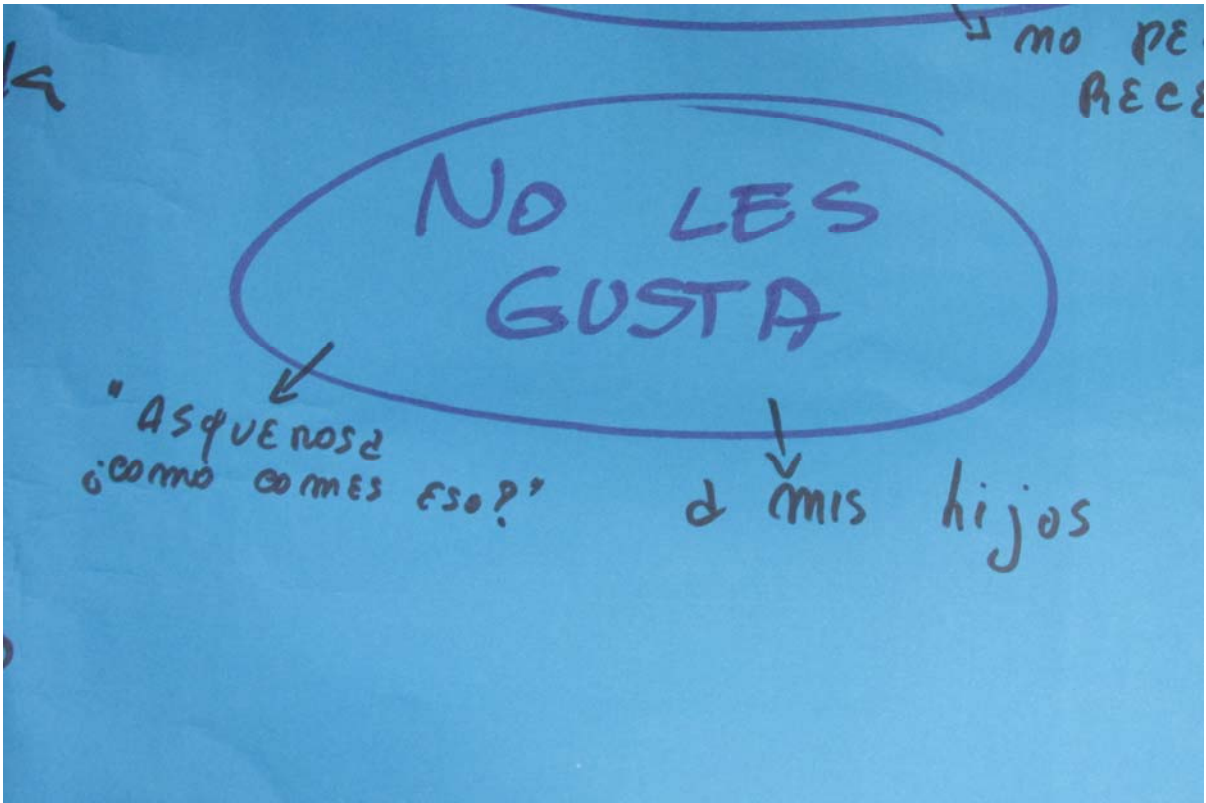 no
NO LES
GUSTA
"ASQUEROSA
¿como comes eso?"
a mis hijos